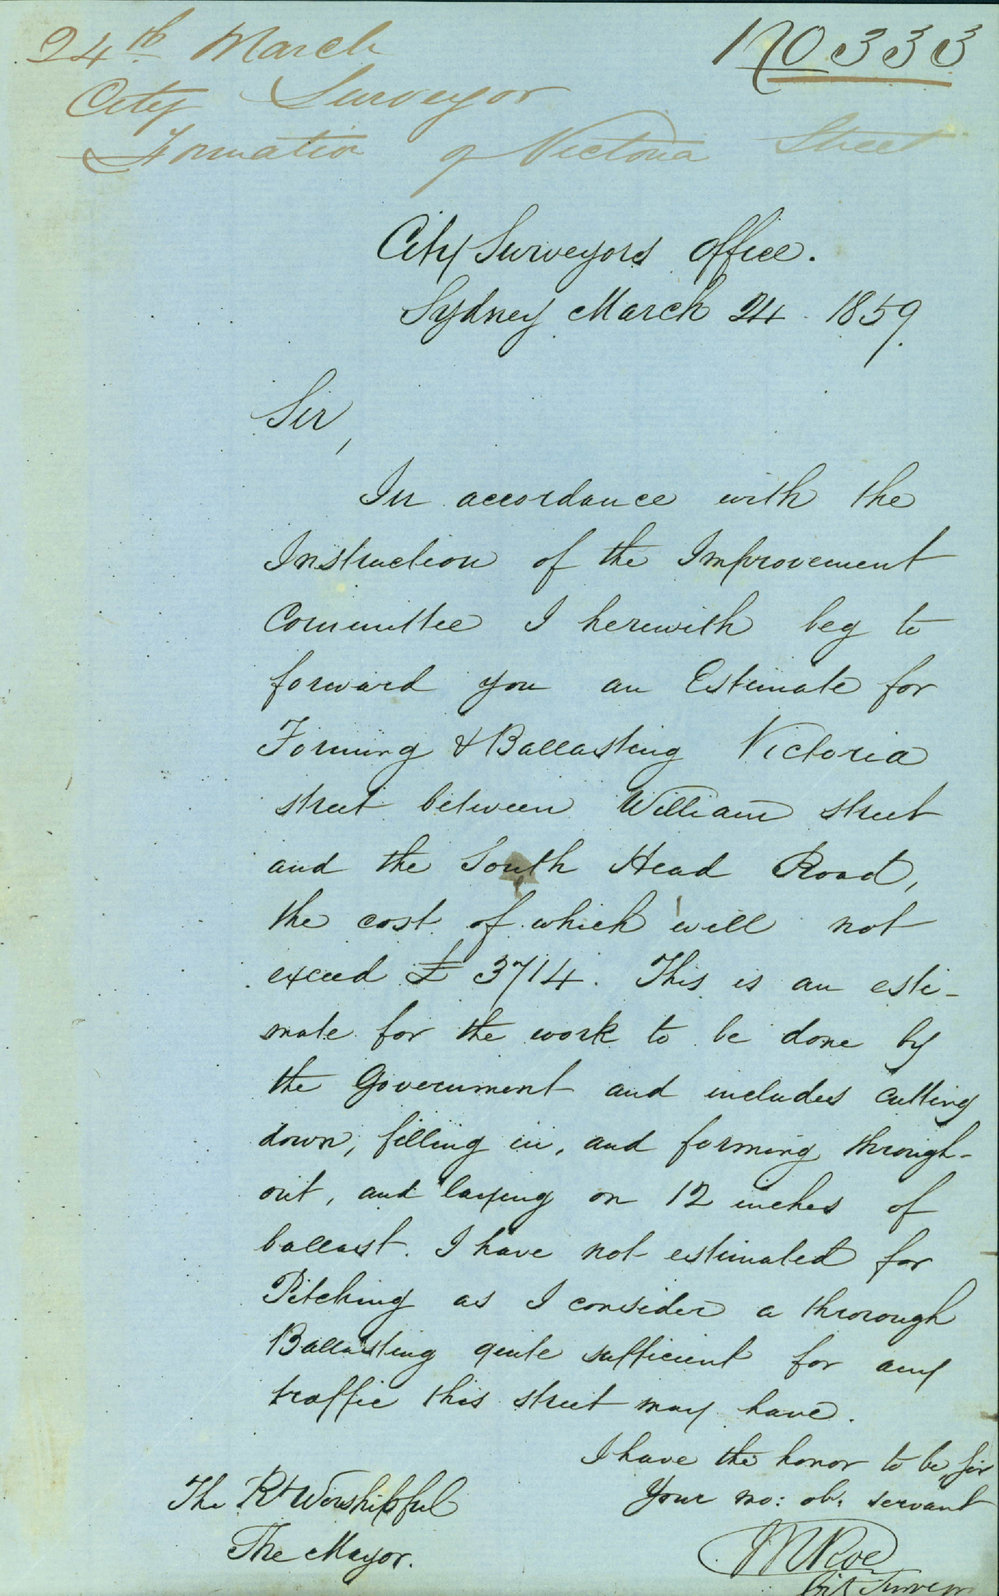 24th March
No 333
City Surveyor
Formation of Victoria Street
City Surveyors Office.
Sydney March 24. 1859.
Sir,
In accordance with the
Instruction of the Improvement
Committee I herewith beg to
forward you an Estimate for
Forming & Ballasting Victoria
street between William street
and the South Head Road,
the cost of which will not
exceed £ 3714. This is an esti-
mate for the work to be done by
the Government and includes cutting
down, filling in, and forming through-
out, and laying on 12 inches of
ballast. I have not estimated for
Pitching as I consider a throrough
Ballasting quite sufficient for any
traffic this street may have.
I have the honor to be Sir
Your mo: ob: servant
The Rt Worshipful
The Mayor.
Roe
City Surveyor